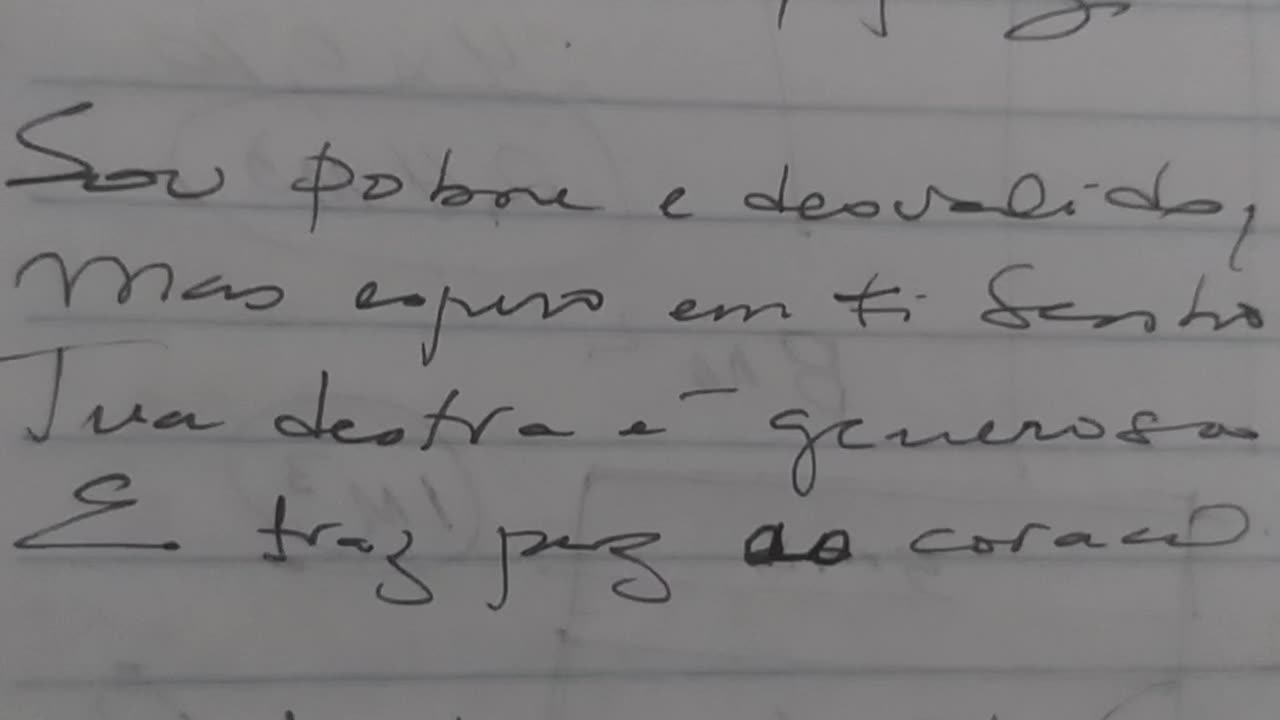 Sou pobre e desvalido,
Mas espero em ti Senho
Tua destra é generosa
E traz paz ao coracao